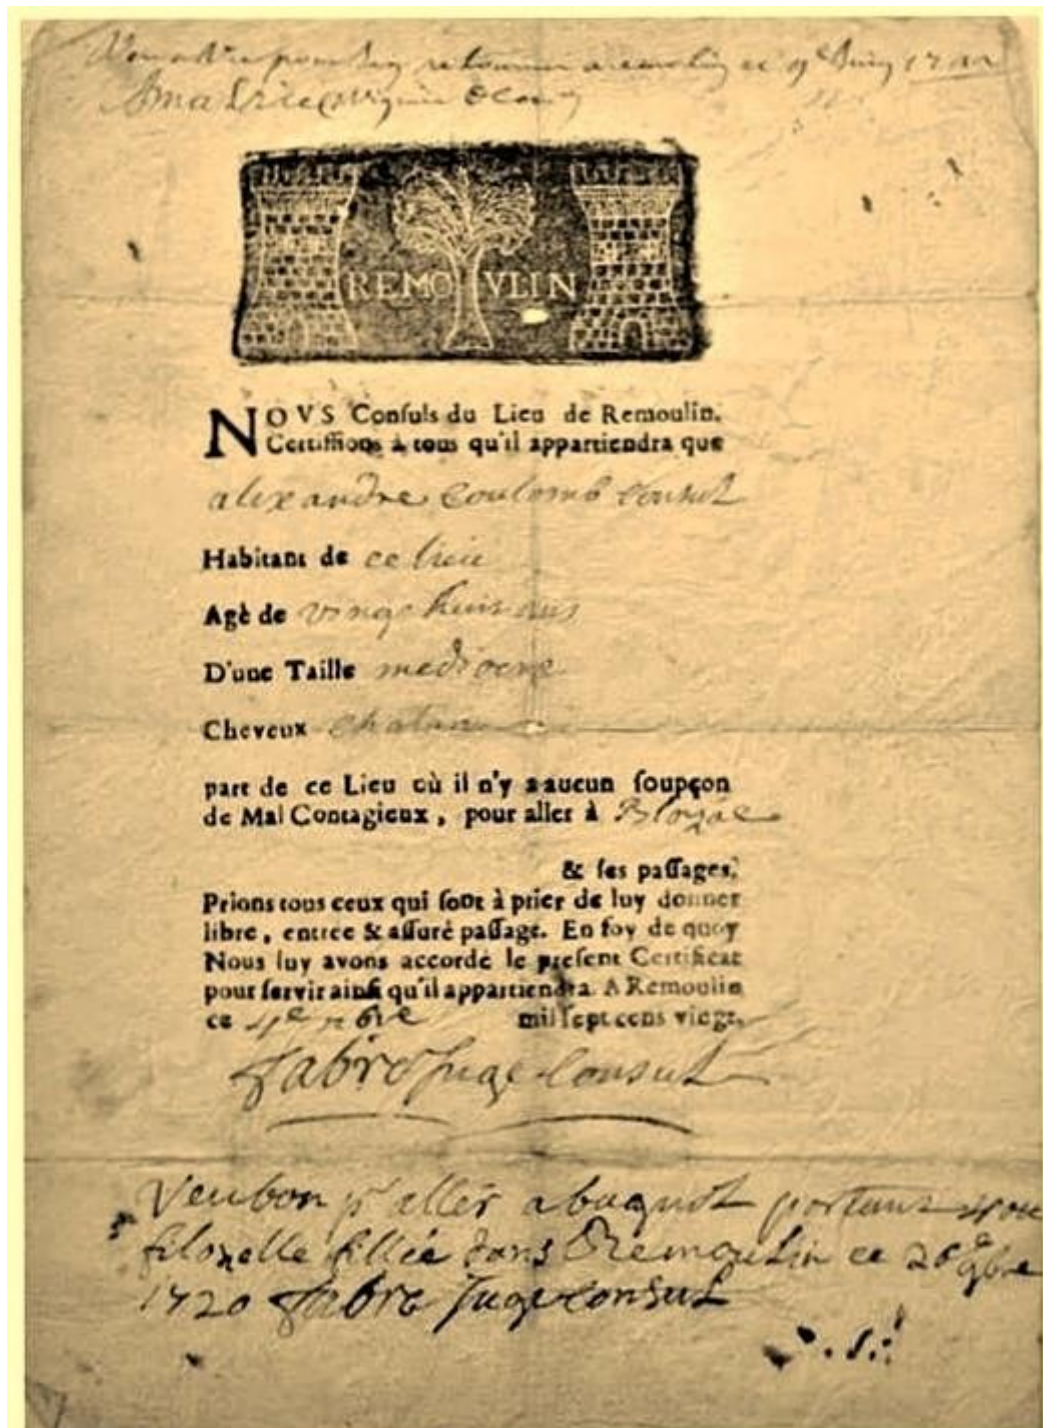 retourner a
REMOVLIN
NOVS Conſuls du Lieu de Remoulin.
Certiffions à tous qu'il appartiendra que
alexandre coulomb consul
Habitant de ce lieu
Agè de vingt huit ans
D'une Taille mediocre
Cheveux chatan
part de ce Lieu où il n'y a aucun ſoupçon
de Mal Contagieux, pour aller à
& ſes paſſages.
Prions tous ceux qui ſont à prier de luy donner
libre, entrée & aſſuré paſſage. En foy de quoy
Nous luy avons accordé le preſent Certificat
pour ſervir ainſi qu'il appartiendra. A Remoulin
ce mil ſept cens vingt.
fabre Juge consul
Veu bon pr aller a bagnol portant
filozelle fillée dans Remoulin ce 26e 9bre
1720 fabre Juge consul